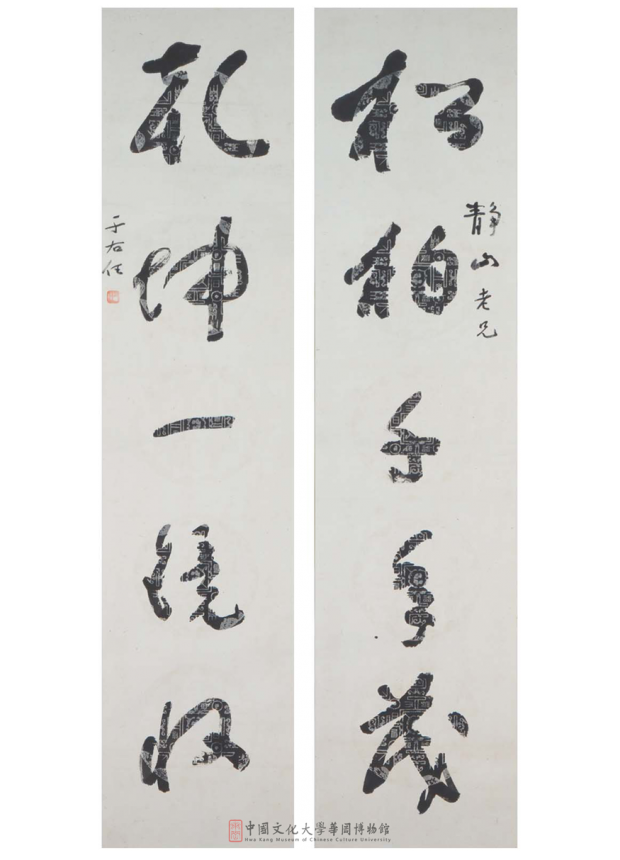 松柏千年茂
静山老兄
乾坤一鏡收
于右任
中國文化大學華岡博物館
Hwa Kang Museum of Chinese Culture University